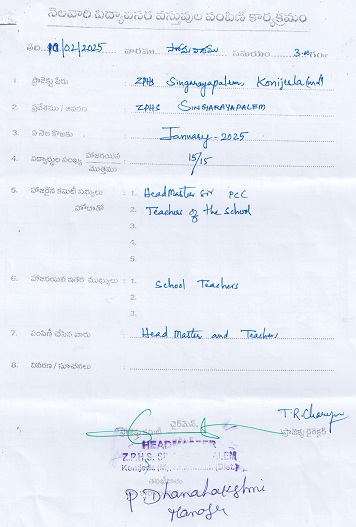 నెలవారి విద్యావసర వస్తువుల పంపిణి కార్యక్రమం
తేది. 10/02/2025 వారము సోమవారము సమయం 3.
1 ప్రాజెక్టు పేరు ZPHS Singarayapalem, Konijerla (md)
2. ప్రదేశము / ఆవరణ ZPHS SINGARAYAPALEM
3. ఏ నెల కొరకు January-2025
4. విద్యార్థుల సంఖ్య హాజరయిన మొత్తము 15/15
5. హాజరైన కమిటీ సభ్యులు 1. Head Master Sir PCC
హోదాతో 2. Teachers of the School
3.
4.
5.
6. హాజరయిన ఇతర ముఖ్యులు 1. School Teachers
2.
3.
7. పంపిణీ చేసిన వారు Head Master and Teachers
8. వివరణ / సూచనలు
T.R.
చైర్మెన్, ప్రాజెక్టు డైరెక్టర్
HEADMASTER
Z.P.H.S.
P. Dhanalakshmi
Manager